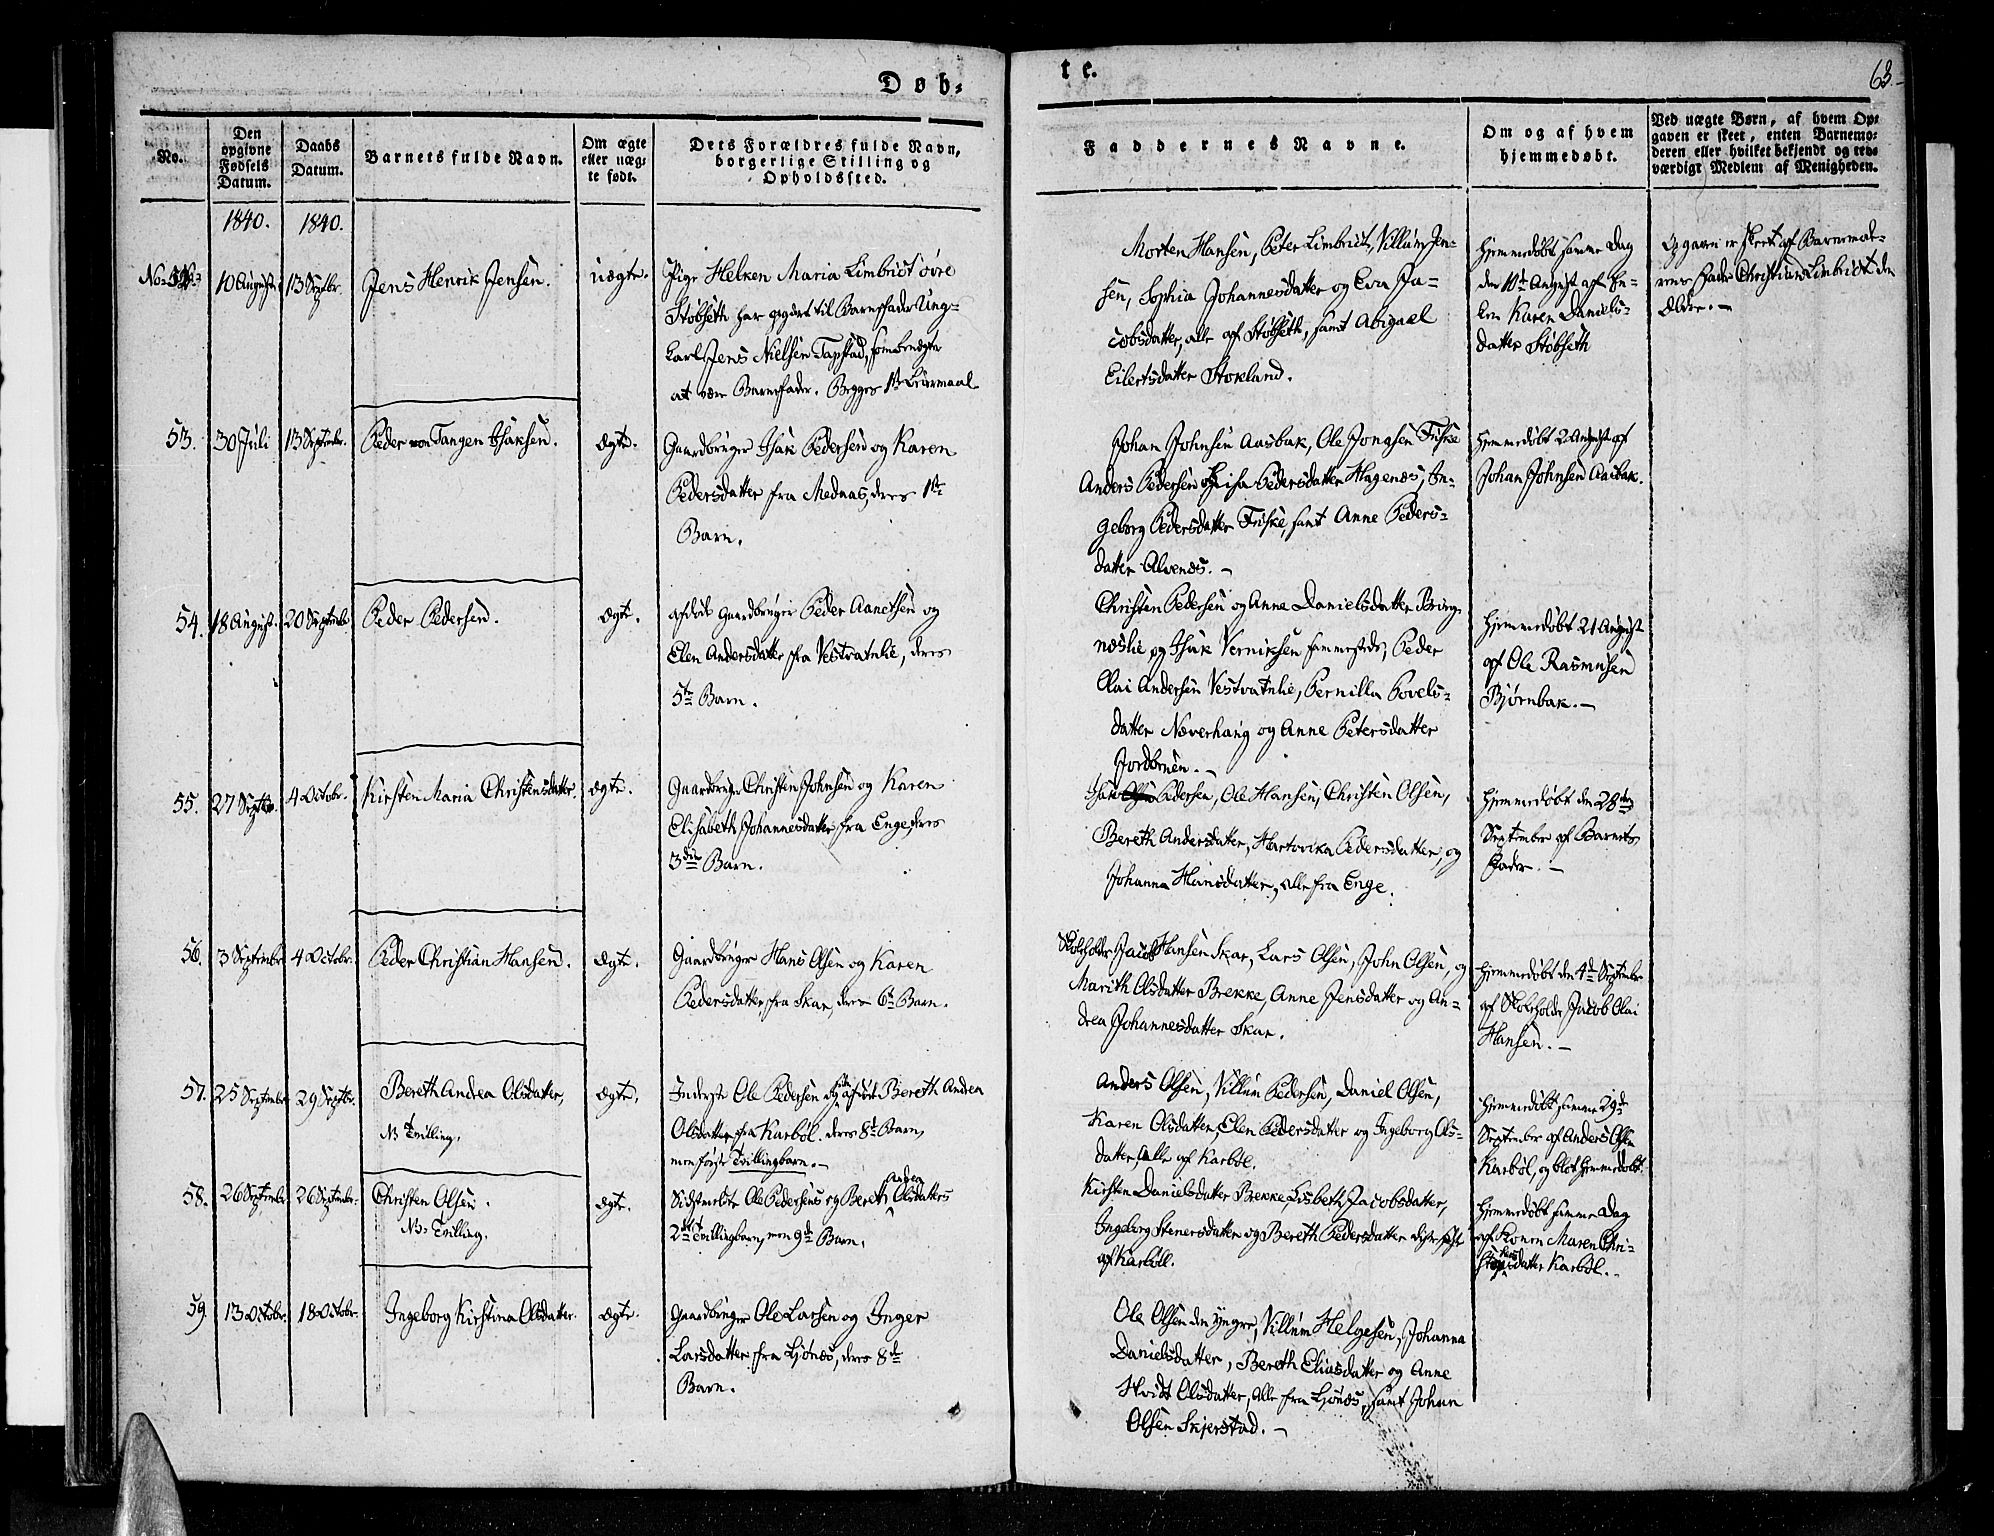 Døb-
te.
63.
No.
Den
opgivne
Fødsels
Datum.
Daabs
Datum.
Barnets fulde Navn.
Om ægte
eller uæg-
te født.
Dets Forældres fulde Navn,
borgerlige Stilling og
Opholdssted.
Faddernes Navne.
Om og af hvem
hjemmedøbt.
Ved uægte Børn, af hvem Op-
gaven er skeet, enten Barnemo-
deren eller hvilket bekjendt og tro-
værdigt Medlem af Menigheden.
1840.
1840.
No. 52.
10 August
13 Septbr.
Jens Henrik Jensen.
uægte.
Pige Helken Maria Limbriet øvre
Støbseth har opgivet til Barnefader Ung-
karl Jens Nielsen Tapstad, som benegter
at være Barnefader. Begges 1ste Leiermaal
Morten Hansen, Peter Limbriet, Villum Jen-
sen, Sophia Johannesdatter og Eva Ja-
cobsdatter, alle af Støbseth, samt Abigael
Eilertsdatter Storland.
hjemmedøbt samme Dag
den 10de August af En-
ken Karen Daniels-
datter Støbseth
Opgaven er skeet af Barnemode-
rens Fader Christian Limbriet den
Ældre. -
53.
30 Juli
13 Septembr.
Peder von Tangen Isaksen.
ægte.
Gaardbruger Isak Pedersen og Karen
Pedersdatter fra Mednaas, deres 1ste
Barn.
Johan Johnsen Aasbak, Ole Jonsen Friske
Anders Pedersen og Lisa Pedersdatter Hagenæs, In-
geborg Pedersdatter Friske, samt Anne Peders-
datter Alvenæs. -
hjemmedøbt 2 August af
Johan Johnsen Aasbak.
54.
18 August.
20 Septembr.
Peder Pedersen.
ægte.
afdøde Gaardbruger Peder Aanetsen og
Elen Andersdatter fra Vestvatnlie, deres
5te Barn.
Christen Pedersen og Anne Danielsdatter Bring-
næslie og Isak Verniksen sammesteds, Peder
Olai Andersen Vestvatnlie, Pernilla Povels-
datter Næverhaug og Anne Petersdatter
Jordbruen. -
hjemmedøbt 21 August
af Ole Rasmusen
Bjørnbak. -
55.
27 Septbr.
4 Octobr.
Kirsten Maria Christensdatter.
ægte.
Gaardbruger Christen Johnsen og Karen
Elisabeth Johannesdatter fra Enge, deres
3die Barn.
Isak Pedersen, Ole Hansen, Christen Olsen,
Bereth Andersdatter, Hartvika Pedersdatter, og
Johanna Hansdatter, alle fra Enge.
hjemmedøbt den 28de
September af Barnets
Fader. -
56.
3 Septembr
4 Octobr.
Peder Christian Hansen.
ægte.
Gaardbruger Hans Olsen og Karen
Pedersdatter, fra Skar, deres 6te Barn.
Skoleholder Jacob Hansen Skar, Lars Olsen, John Olsen, og
Marith Olsdatter Brekke, Anne Jensdatter og An-
drea Johannesdatter Skar.
hjemmedøbt den 4de Septembr
af Skoleholder Jacob Olai
Hansen. -
57.
25 Septembr
29 Septbr.
Bereth Andrea Olsdatter,
NB Tvilling.
ægte.
Inderst Ole Pedersen og afdøde Bereth Andrea
Olsdatter fra Karbøl. deres 8de Barn,
men første Tvillingbarn. -
Anders Olsen, Villum Pedersen, Daniel Olsen,
Karen Olsdatter, Elen Pedersdatter og Ingeborg Ols-
datter, alle af Karbøl.
hjemmedøbt samme 29de
September af Anders Olsen
Karbøl, og blot hjemmedøbt.
58.
26 Septembr
26 Septembr.
Christen Olsen.
NB. Tvilling.
ægte.
Sidstmeldte Ole Pedersens og Bereth Andrea Olsdatters
2det Tvillingbarn, men 9de Barn.
Kirsten Danielsdatter Brekke, Lisbeth Jacobsdatter,
Ingeborg Stenersdatter og Bereth Pedersdatter
af Karbøll.
hjemmedøbt samme Dag
af Konen Maren Chri-
stophersdatter Karbøl. -
59.
13 Octobr.
18 Octobr.
Ingeborg Kirstina Olsdatter.
ægte.
Gaardbruger Ole Larsen og Inger
Larsdatter fra Ljønæs, deres 8de
Barn.
Ole Olsen den yngre, Villum Helgesen, Johanna
Danielsdatter, Bereth Eliasdatter og Anne
Hvidt Olsdatter, alle fra Ljønæs, samt Johan
Olsen Skjerstad. -